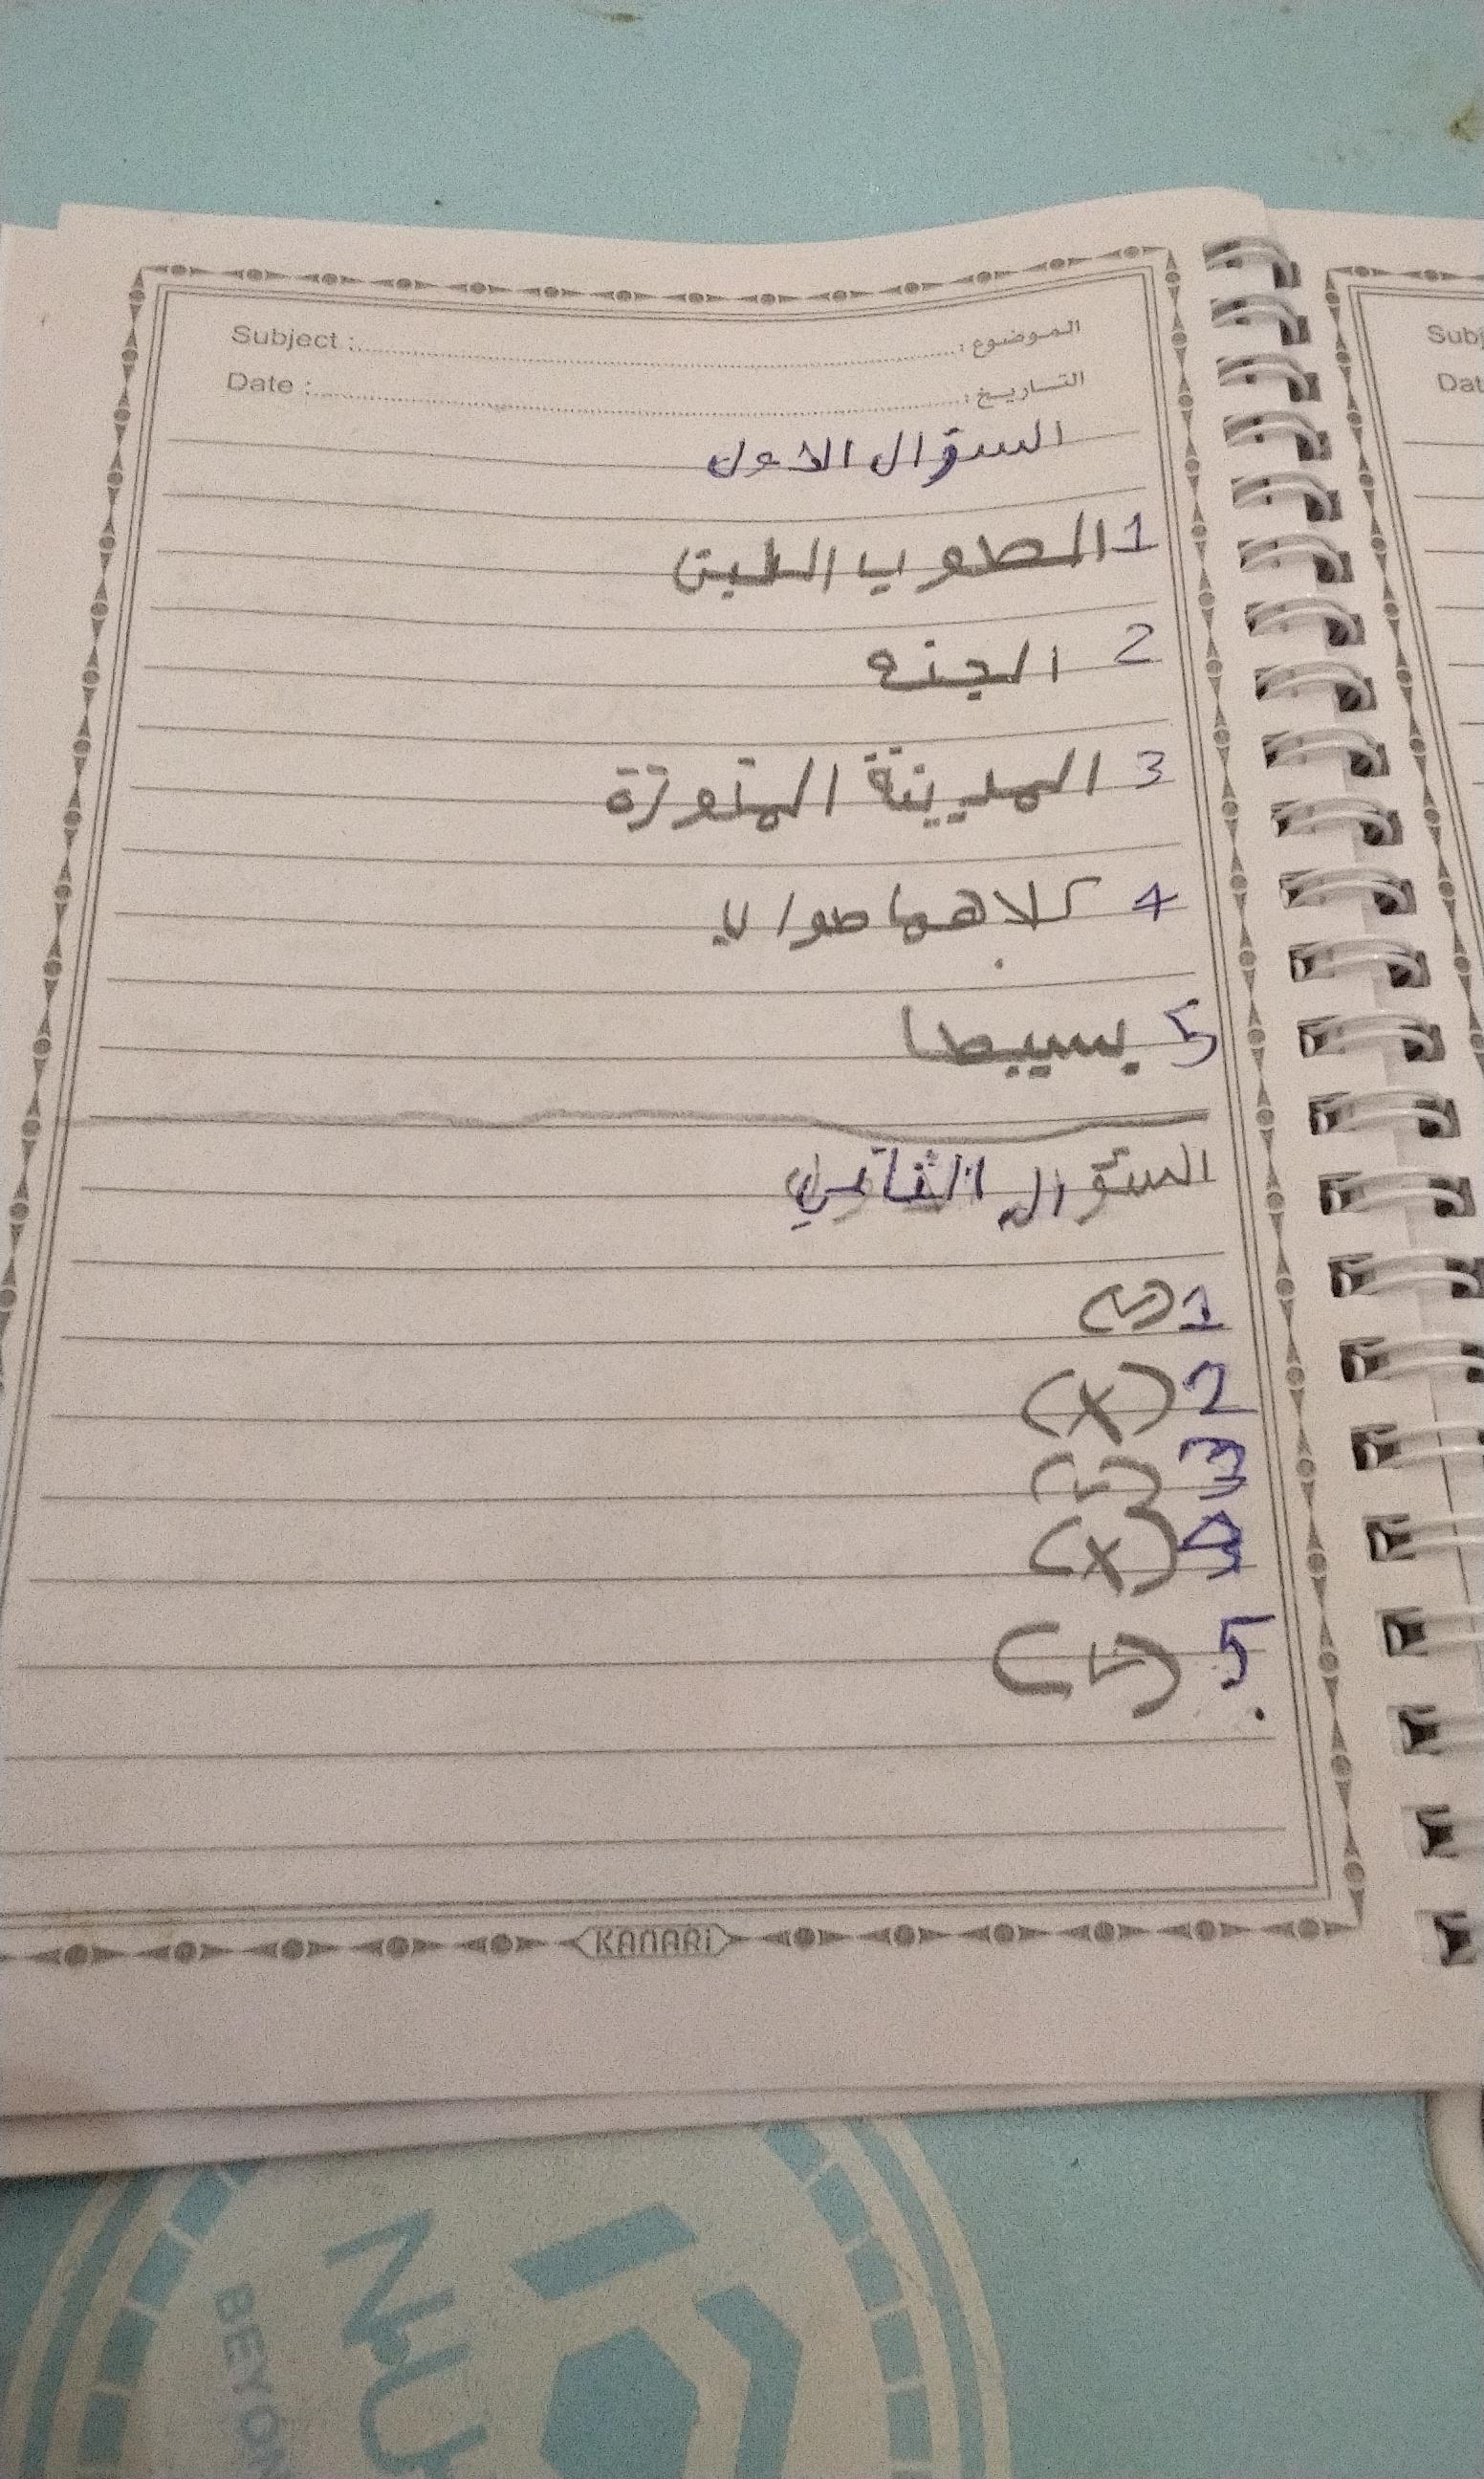 Subject : الموضوع :
Date : التاريخ :
السؤال الاول
1 الطوب اللبن
2 الجنه
3 المديينة المنورة
4 كلاهما صواب
5 بسيطا
السؤال الثاني
1 (✓)
2 (x)
3 (✓)
4 (x)
5 (✓)
KANARi
Subj
Dat
NU
BEYON